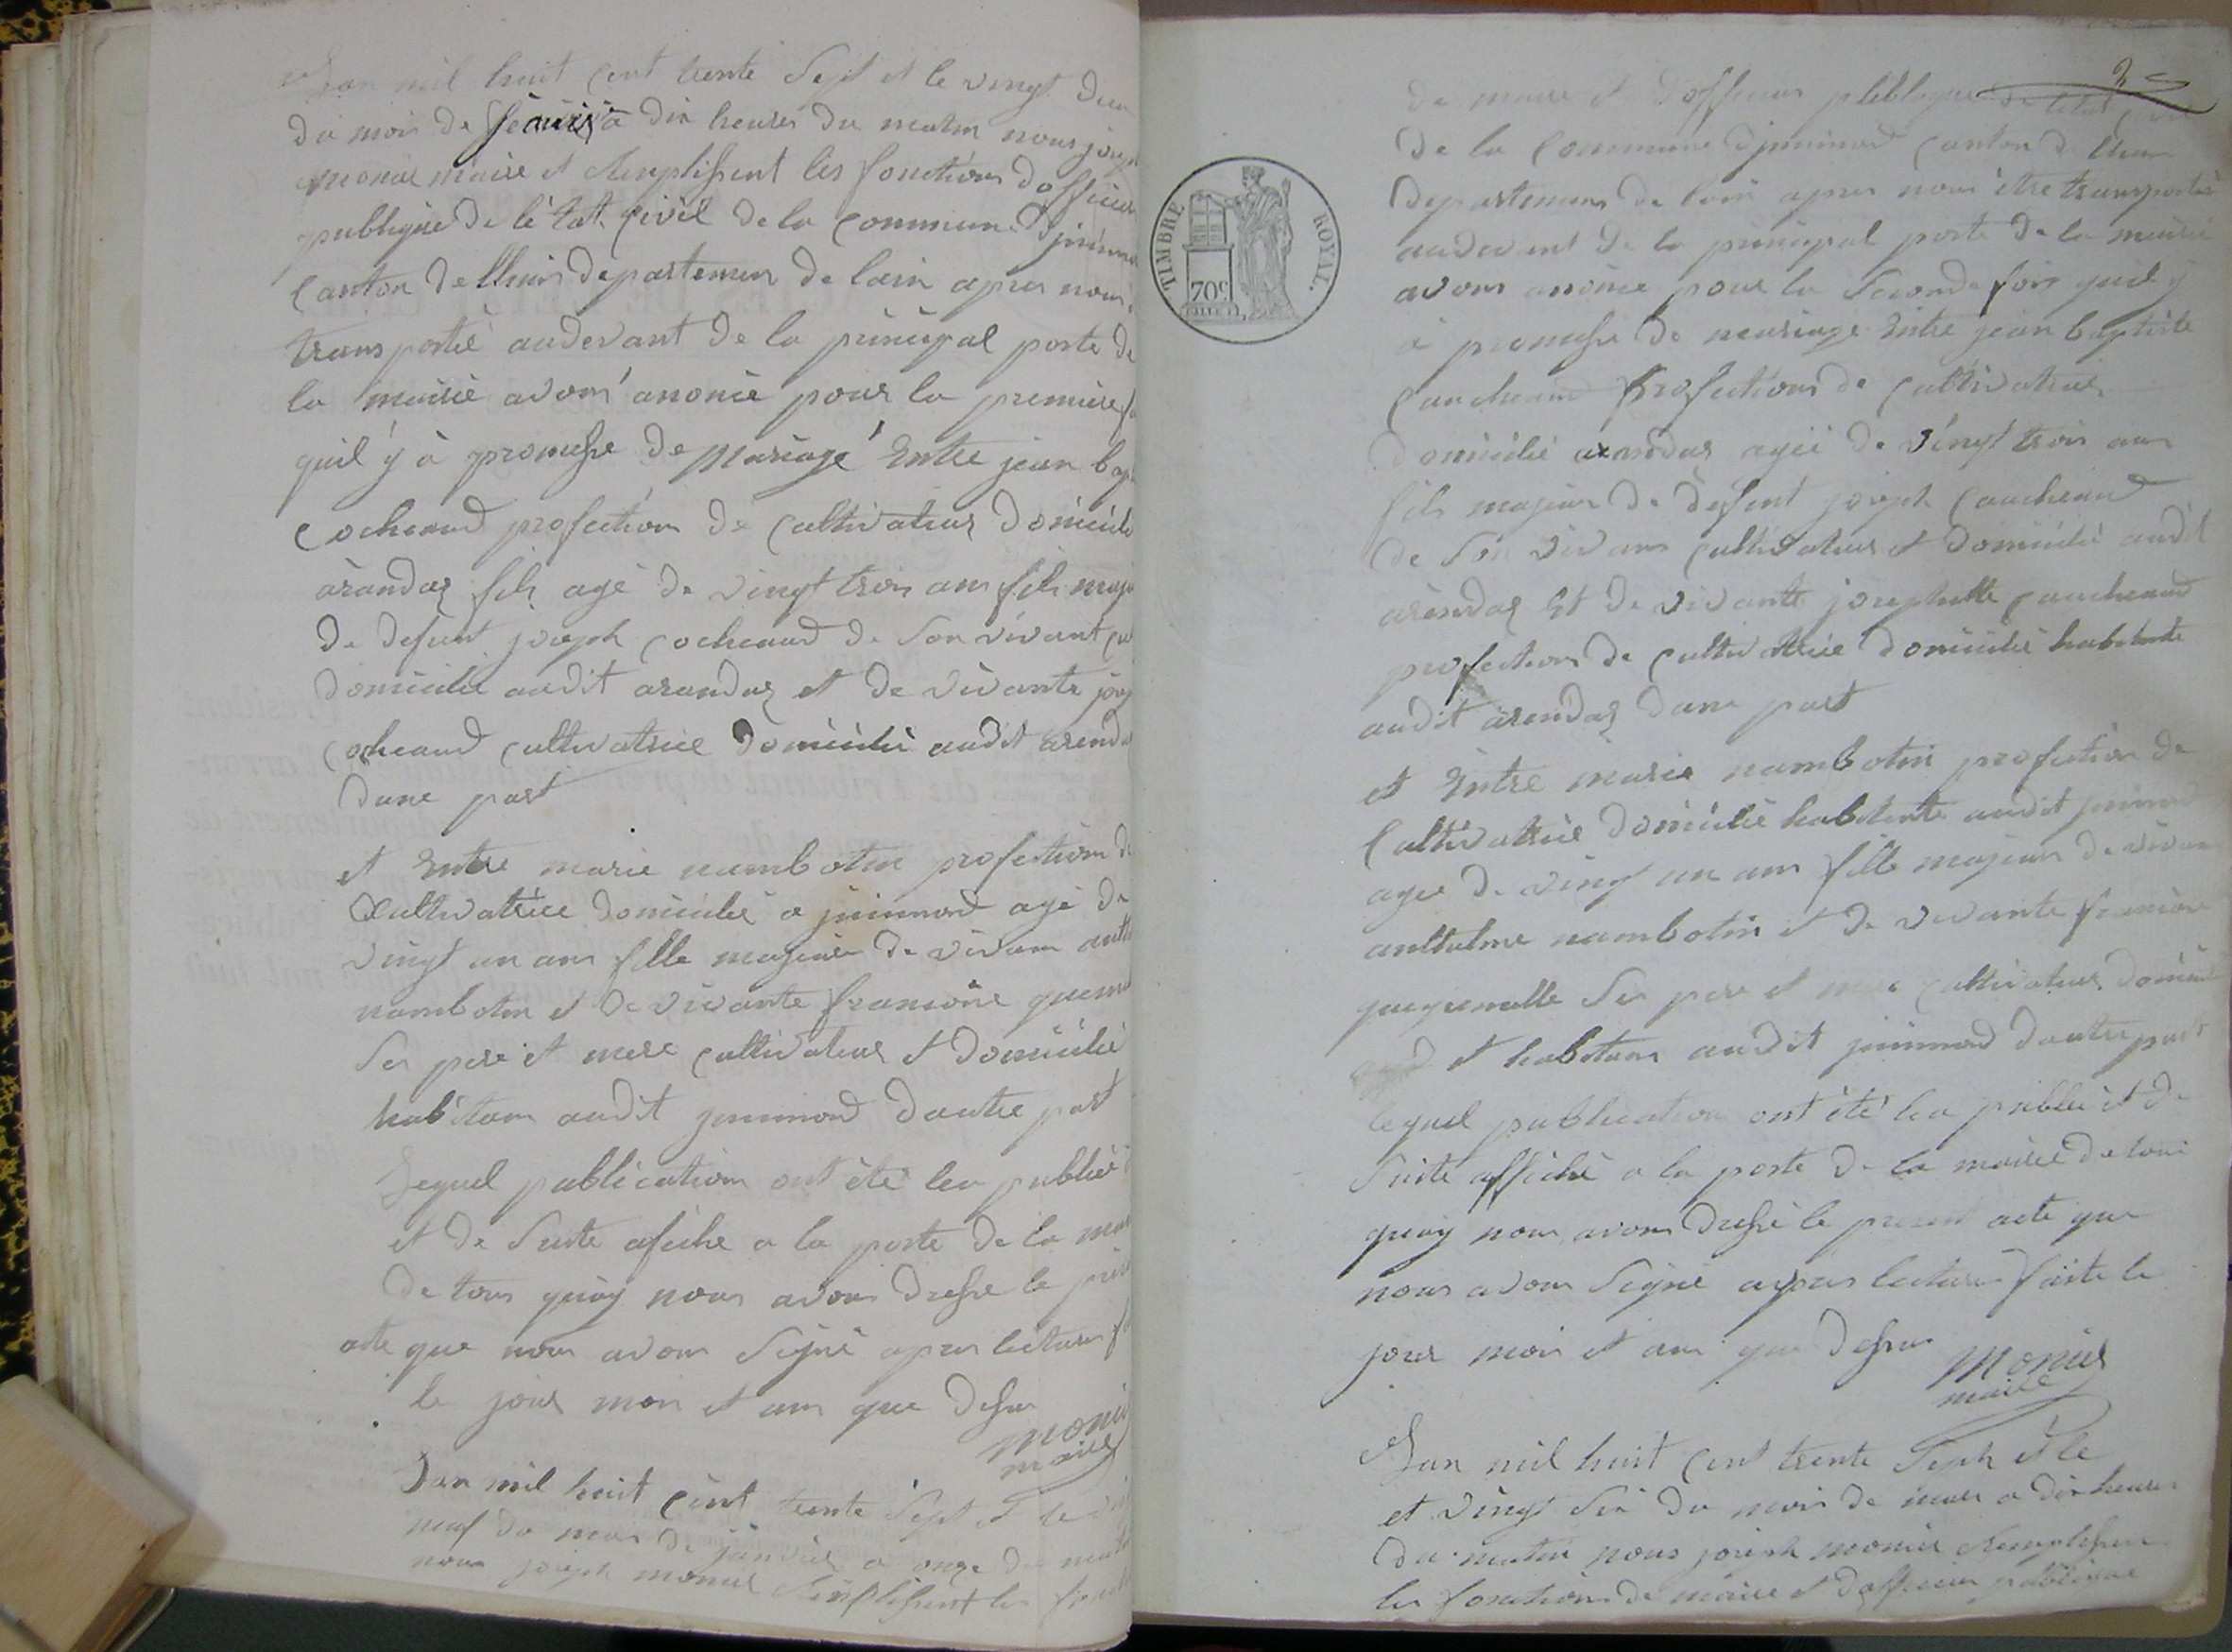 Lan mil huit cent trente Sept et le vingt deux
du mois de à dix heures du matin nous joseph
monier maire et Remplissent les fonctions dofficier
publique de létat civil de la commune djnimon
Canton de lhuis departemen de lain apres nous
transportée audevant de la principal porte de
la mairie avons anoncé pour la premiere fo
quil y à promesse de Mariage Entre jean bap
Cocheaud profection de Cultivateur domicilié
àrandas fils agé de vingt trois ans fils maje
de defunt joseph Cocheaud de Son vivant cu
domicilié audit arandas et de vivante jos
Cocheaud cultivatrice domicilié audit arandas
dune part
et Entre marie nambotin profection de
Cultivatrice domicilié a jnimond agé de
vingt un ans fille majeure de vivan anth
nambotin et de vivante francoise quem
Ses pere et mere cultivateur et domicilié
habitans audit jnnimond dautre part
Lequel publication ont été leu publiée
et de Suite afiche a la porte de la mai
de tous quoy nous avons dressé le pres
acte que nous avons Signé apres lecture f
le jour mois et ans que dessus
monier
maire
Lan mil huit cent trente Sept et le vingt
neuf du mois de janvier a onze du matin
nous joseph monier Remplissent les fonct
2
de maire et dofficier publique de letat civil
de la Commune djnimond Canton de lhuis
departemens de lain apres nous être transportée
audevent de la principal porte de la mairie
avons anoncé pour la Seconde fois quil y
à promesse de mariage Entre jean baptiste
Caucheaud profections de Cultivateur
domicilié arandas agée de vingt trois ans
fils majeur de defunt joseph Caucheaud
de Son vivans cultivateur et domicilié audit
àrandas Et de vivante josephette caucheaud
profection de cultivatrice domicilié habitante
audit àrandas dune part
et Entre marie nambotin profection de
Cultivatrice domicilié habitante audit jnimond
agee de vingt un ans fille majeure de vivan
anthelme nambotin et de vivante francoise
Ses pere et mere cultivateur domicilié
et habitans audit jnimond dautre part
lequel publication ont été leu publié et de
Suite affiché a la porte de la mairie de tous
quoy nous avons dressé le present acte que
nous avons Signé appres lecture faite le
jour mois et ans que dessus
Monier
maire
Lan mil huit cent trente Sept et le
et vingt Six du mois de mars a dix heures
du matin nous joseph monier Remplissen
les fonctions de maire et dofficier publique
TIMBRE ROYAL.
70c